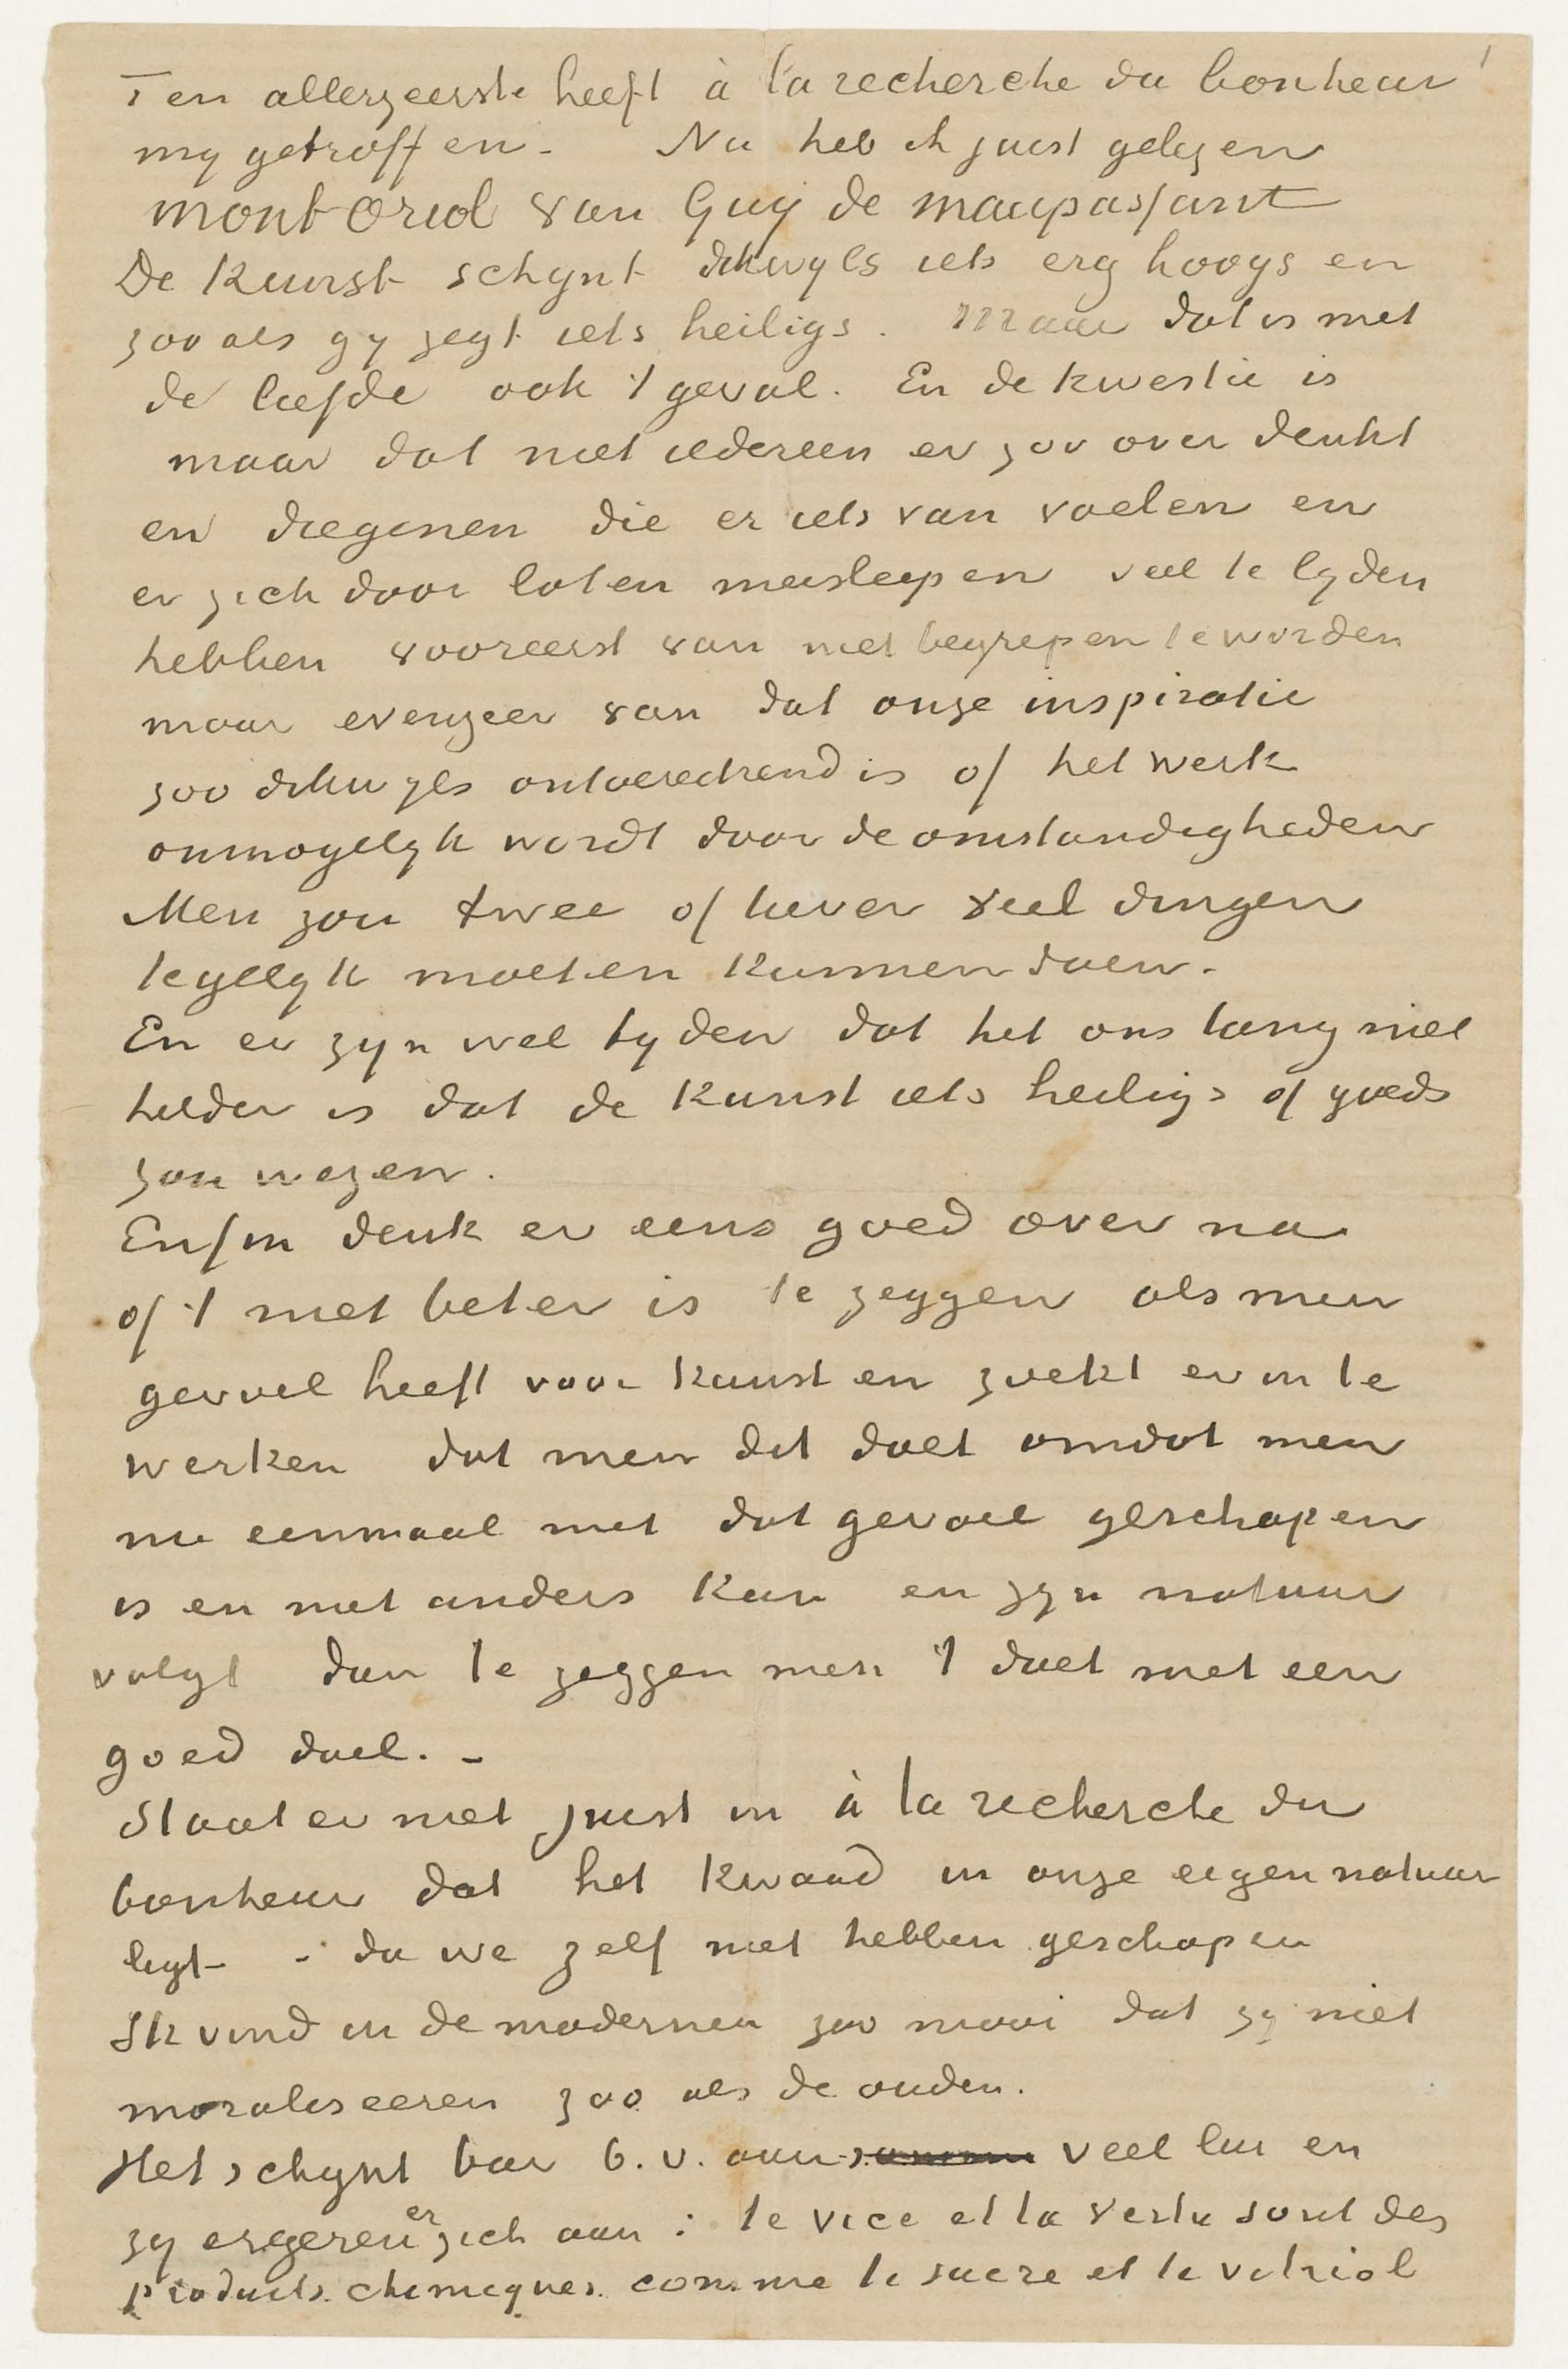 Ten allerzeerste heeft à la recherche du bonheur
my getroffen – Nu heb ik juist gelezen
mont Oriol van Guy de maupassant
De kunst schynt dikwyls iets erg hoogs en
zooals gy zegt iets heiligs. Maar dat is met
de liefde ook 't geval. En de kwestie is
maar dat niet iedereen er zoo over denkt
en diegenen die er iets van voelen en
er zich door laten meesleepen veel te lyden
hebben vooreerst van niet begrepen te worden
maar evenzeer van dat onze inspiratie
zoo dikwyls ontoereikend is of het werk
onmogelyk wordt door de omstandigheden
Men zou twee of liever veel dingen
tegelyk moeten kunnen doen.
En er zyn wel tyden dat het ons lang niet
helder is dat de kunst iets heiligs of goeds
zou wezen.
Enfin denk er eens goed over na
of 't niet beter is te zeggen als men
gevoel heeft voor kunst en zoekt er in te
werken dat men dit doet omdat men
nu eenmaal met dat gevoel geschapen
is en niet anders kan en zyn natuur
volgt dan te zeggen men 't doet met een
goed doel. –
Staat er niet juist in à la recherche du
bonheur dat het kwaad in onze eigen natuur
ligt – die we zelf niet hebben geschapen
Ik vind in de modernen zoo mooi dat zy niet
moraliseeren zoo als de ouden.
Het schynt bar b.v. aan veel lui en
zy ergeren er zich aan: le vice et la vertu sont des
produits chimiques. comme le sucre et le vitriol